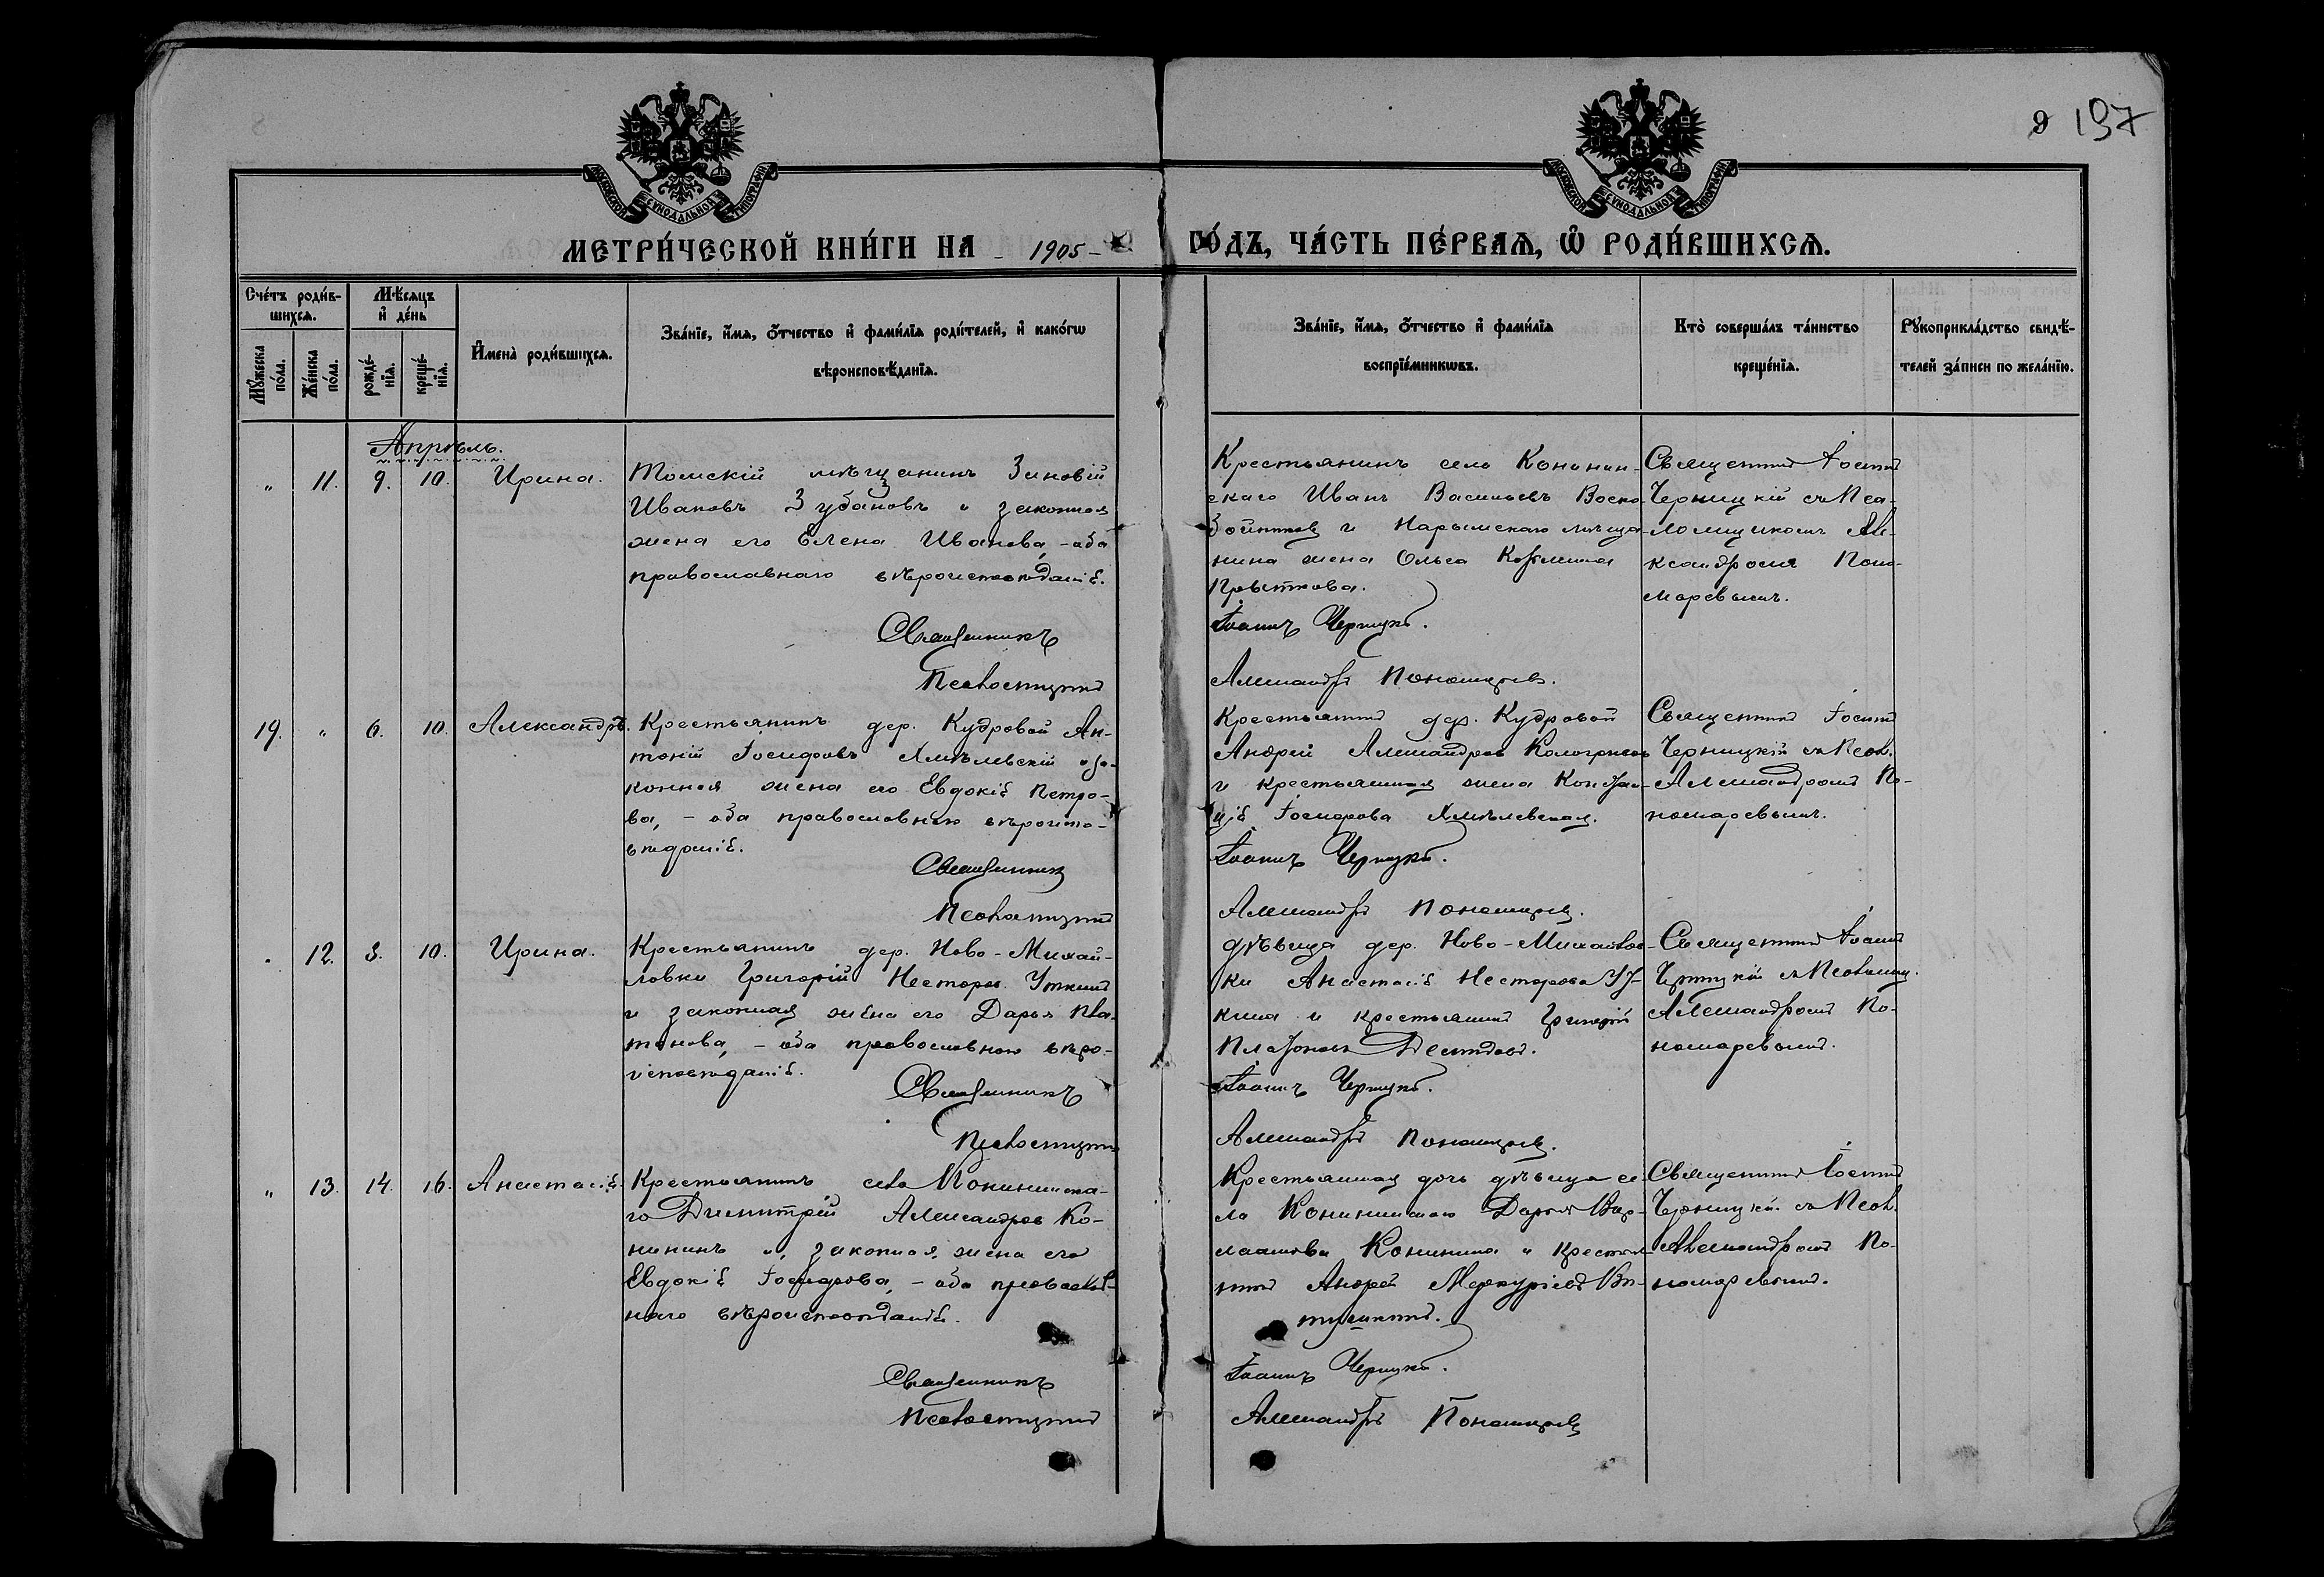 9 197
МОСКОВСКОЙ СѴНОДАЛЬНОЙ ТИПОГРАФІИ
МОСКОВСКОЙ СѴНОДАЛЬНОЙ ТИПОГРАФІИ
МЕТРИ́ЧЕСКОЙ КНИ́ГИ НА 1905 ГО́ДЪ, ЧА́СТЬ ПЕ́РВАѦ, Ѽ РОДИ́ВШИХСѦ.
Сче́тъ роди́в-
шихсѧ.
Мꙋ́жеска по́ла.
Же́нска по́ла.
Мѣ́сѧцъ
и҆ де́нь
рожде́-
нїѧ.
креще́-
нїѧ.
И҆мена̀ роди́вшихсѧ.
Зва́нїе, и҆́мѧ, ѻ҆́тчество и҆ фами́лїѧ роди́телей, и҆ како́гѡ
вѣроисповѣ́данїѧ.
Зва́нїе, и҆́мѧ, ѻ҆́тчество и҆ фами́лїѧ
воспрїе́мникѡвъ.
Кто̀ соверша́лъ та́инство
креще́нїѧ.
Рꙋкоприкла́дство свидѣ́-
телей за́писи по жела́нїю.
Апрѣль.
" 11. 9. 10. Ирина.
Томскій мѣщанинъ Зиновій
Ивановъ Зубановъ и законная
жена его Елена Иванова, - оба
православнаго вѣроисповѣданія.
Священникъ
Псаломщикъ
Крестьянинъ села Конинин-
скаго Иванъ Васильевъ
и Нарымскаго мѣща-
нина жена Ольга
Іоаннъ Черницкій.
Александръ Пономаревъ.
Священникъ Іоаннъ
Черницкій съ Пса-
ломщикомъ Але-
ксандромъ Поно-
маревымъ.
19. " 6. 10. Александръ.
Крестьянинъ дер. Кудровой Ан-
тоній Іосифовъ Хмѣлевскій и за-
конная жена его Евдокія Петро-
ва, - оба православнаго вѣроиспо-
вѣданія.
Священникъ
Псаломщикъ
Крестьянинъ дер. Кудровой
Андрей Александровъ
и крестьянская жена
Іосифова Хмѣлевская.
Іоаннъ Черницкій.
Александръ Пономаревъ.
Священникъ Іоаннъ
Черницкій съ Псал.
Александромъ По-
номаревымъ.
" 12. 10. Ирина.
Крестьянинъ дер. Ново-Михай-
ловки Григорій Несторовъ Уткинъ
и законная жена его Дарья Пла-
тонова, - оба православнаго вѣро-
исповѣданія.
Священникъ
Псаломщикъ
дѣвица дер. Ново-Михайлов-
ки Анастасія Несторова Ут-
кина и крестьянинъ Григорій
Іоаннъ Черницкій.
Александръ Пономаревъ.
Священникъ Іоаннъ
Черницкій съ Псаломщ.
Александромъ По-
номаревымъ.
" 13. 14. 16. Анастасія.
Крестьянинъ села Конининска-
го Димитрій Александровъ Ко-
нининъ и законная жена его
Евдокія Іосифова, - оба православ-
наго вѣроисповѣданія.
Священникъ
Псаломщикъ
Крестьянская дочь дѣвица се-
ла Конининскаго Дарья Вар-
лаамова Конинина и крестья-
нинъ Андрей Меркуріевъ
Іоаннъ Черницкій.
Александръ Пономаревъ
Священникъ Іоаннъ
Черницкій съ Псал.
Александромъ По-
номаревымъ.